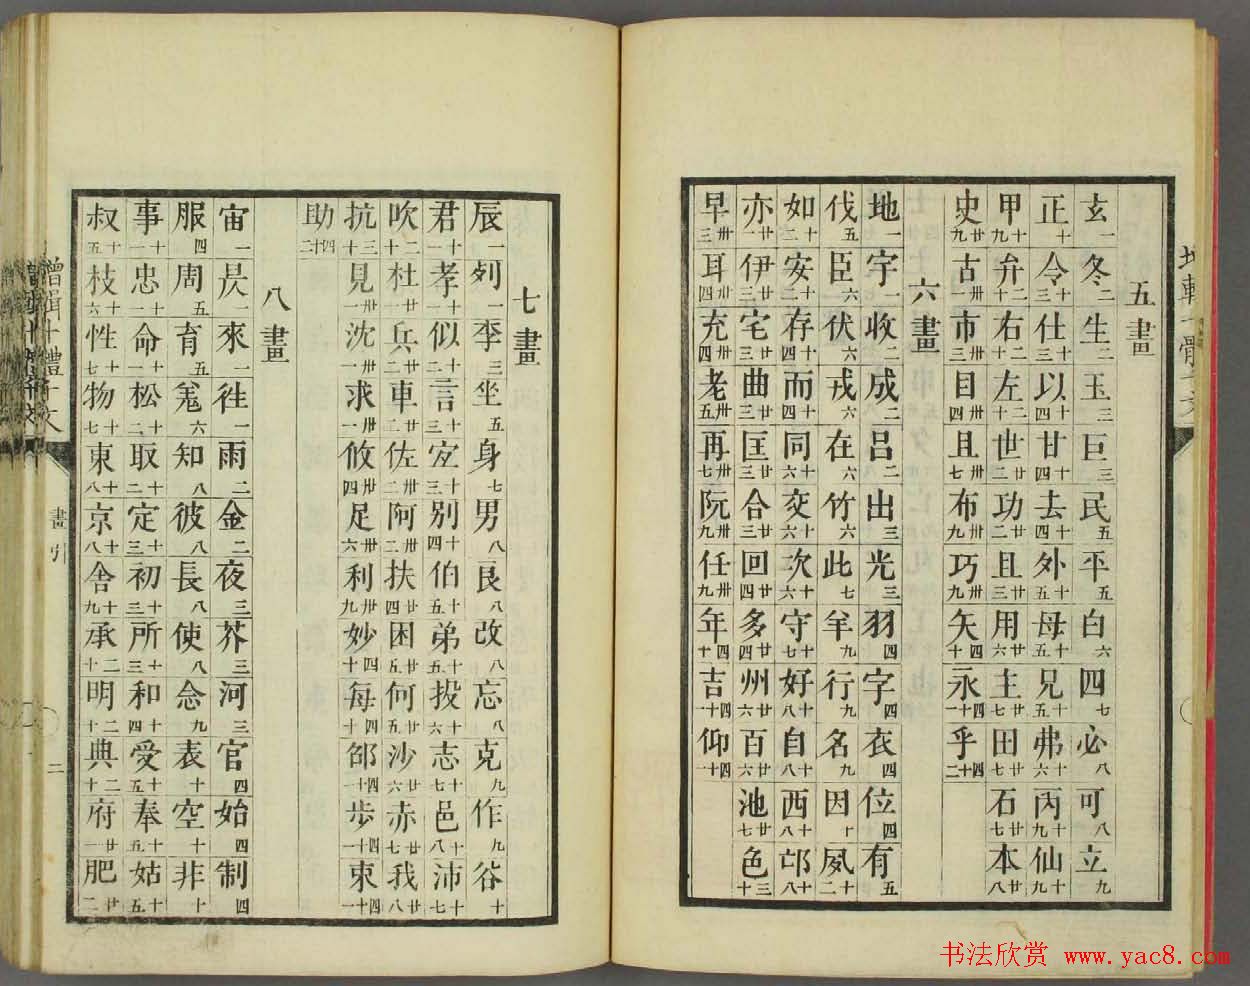 五畫
玄一 冬二 生二 玉三 巨三 民五 平五 白六 四七 必八 可八 立九
正十 令十三 仕十三 以十四 甘十四 去十四 外十五 母十五 兄十五 弗十六 丙十九 仙十九
甲十九 弁二十 右二十 左二十 世廿一 功廿二 且廿三 用廿六 主廿七 田廿七 石廿七 本廿八
史廿九 古卅一 市卅三 目卅四 且卅七 布卅九 巧卅九 矢四十 永四十一 乎四十二
六畫
地一 宇一 收二 成二 吕二 出三 光三 羽四 字四 衣四 位四 有五
伐五 臣六 伏六 戎六 在六 竹六 此七 羊九 行九 名九 因十 夙十二
如十二 安十二 存十四 而十四 同十六 交十六 次十六 守十七 好十八 自十八 西十八 邙十八
亦廿一 伊廿二 宅廿三 曲廿三 匡廿三 合廿三 回廿四 多廿四 州廿六 百廿六 池廿七 色三十
早卅三 耳卅四 充卅四 老卅五 再卅七 阮卅九 任卅九 年四十 吉四十一 仰四十一
七畫
辰一 列一 李三 坐五 身七 男八 良八 改八 忘八 克九 作九 谷十
君十一 孝十一 似十二 言十三 㝎十三 別十四 伯十五 弟十五 投十六 志十七 邑十八 沛十七
吹二十 杜廿一 兵廿二 車廿二 佐廿二 阿廿二 扶廿四 困廿五 何廿五 沙廿六 赤廿七 我廿八
抗三十 見卅一 沈卅一 求卅一 攸卅四 足卅六 利卅九 妙四十 每四十 邵四十一 步四十一 束四十一
助四十二
八畫
宙一 昃一 來一 往一 雨二 金二 夜三 芥三 河三 官四 始四 制四
服四 周五 育五 羌六 知八 彼八 長八 使八 念九 表十 空十 非十
事十一 忠十一 命十一 松十二 取十二 定十三 初十三 所十三 和十四 受十五 奉十五 姑十五
叔十五 枝十六 性十七 物十七 東十八 京十八 舍十九 承二十 明二十 典二十 府廿一 肥廿二
增輯十體千文
畫引
二
书法欣赏 www.yac8.com